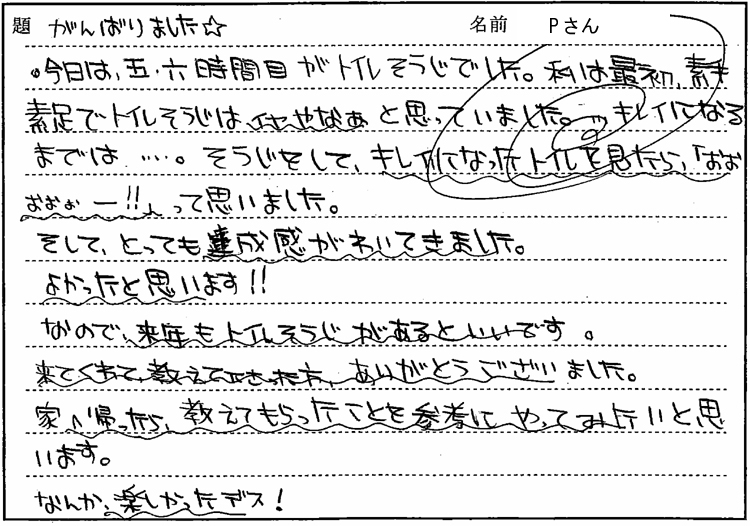 題 がんばりました☆ 名前 Pさん
。今日は、五・六時間目がトイレそうじでした。私は最初、素手
素足でトイレそうじは、イヤやなぁと思っていました。… キレイになる
までは …。そうじをして、キレイになったトイレを見たら、「おお
おぉぉー!!」って思いました。
そして、とっても達成感がわいてきました。
よかったと思います!!
なので、来年もトイレそうじがあるといいです。
来てくれて、教えて下さった方、ありがとうございました。
家へ帰ったら、教えてもらったことを参考に やってみたいと思
います。
なんか、楽しかったデス!